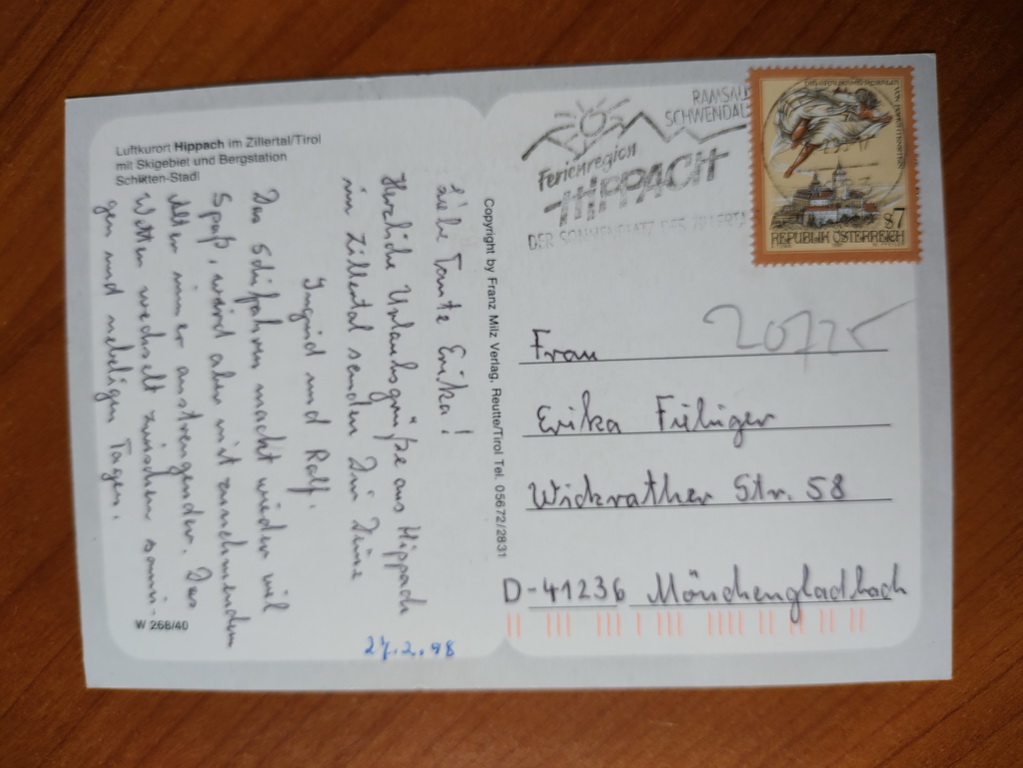 Luftkurort Hippach im Zillertal/Tirol
mit Skigebiet und Bergstation
Schlitten-Stadl
Liebe Tante Erika!
Herzliche Urlaubsgrüße aus Hippach
im Zillertal senden Dir Deine
Ingrid und Ralf.
Das Schifahren macht wieder viel
Spaß, wird aber mit zunehmendem
Alter immer anstrengender. Das
Wetter wechselt zwischen sonni-
gen und nebeligen Tagen.
W 268/40
27.2.98
Copyright by Franz Milz Verlag, Reutte/Tirol Tel. 05672/2831
RAMSAU
SCHWENDAU
Ferienregion
HIPPACH
DER SONNENPLATZ DES ZILLERTA
S7
REPUBLIK ÖSTERREICH
20725
Frau
Erika
Wickrather Str. 58
D-41236 Mönchengladbach